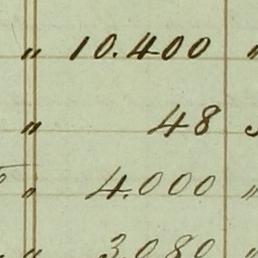 " 10.400 "
" 48
" 4.000 "
" 3.080 "